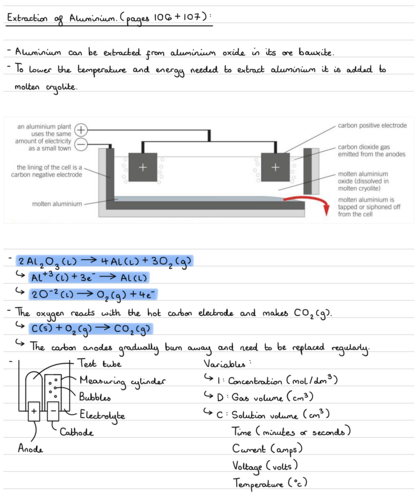 Extraction of Aluminium. (pages 106 + 107) :
- Aluminium can be extracted from aluminium oxide in its ore bauxite.
- To lower the temperature and energy needed to extract aluminium it is added to
molten cryolite.
an aluminium plant
uses the same
amount of electricity
as a small town
+
−
the lining of the cell is a
carbon negative electrode
molten aluminium
+
+
carbon positive electrode
carbon dioxide gas
emitted from the anodes
molten aluminium
oxide (dissolved in
molten cryolite)
molten aluminium is
tapped or siphoned off
from the cell
- 2Al₂O₃(l) → 4Al(l) + 3O₂(g)
↳ Al⁺³(l) + 3e⁻ → Al(l)
↳ 2O⁻²(l) → O₂(g) + 4e⁻
- The oxygen reacts with the hot carbon electrode and makes CO₂(g).
↳ C(s) + O₂(g) → CO₂(g)
↳ The carbon anodes gradually burn away and need to be replaced regularly.
- Test tube
Measuring cylinder
Bubbles
Electrolyte
+
−
Cathode
Anode
Variables :
↳ I : Concentration (mol/dm³)
↳ D : Gas volume (cm³)
↳ C : Solution volume (cm³)
Time (minutes or seconds)
Current (amps)
Voltage (volts)
Temperature (°c)